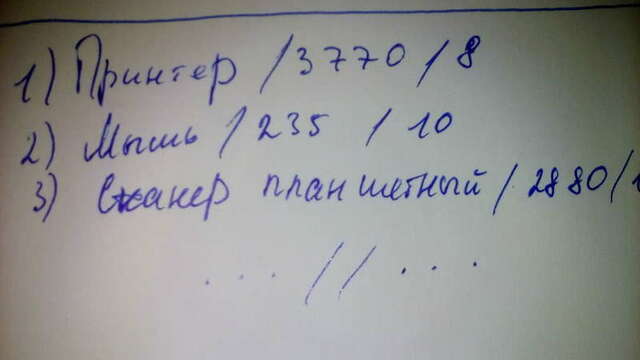 1) Принтер / 3770 / 8
2) Мышь / 235 / 10
3) Сканер планшетный / 2880 /
... // ...